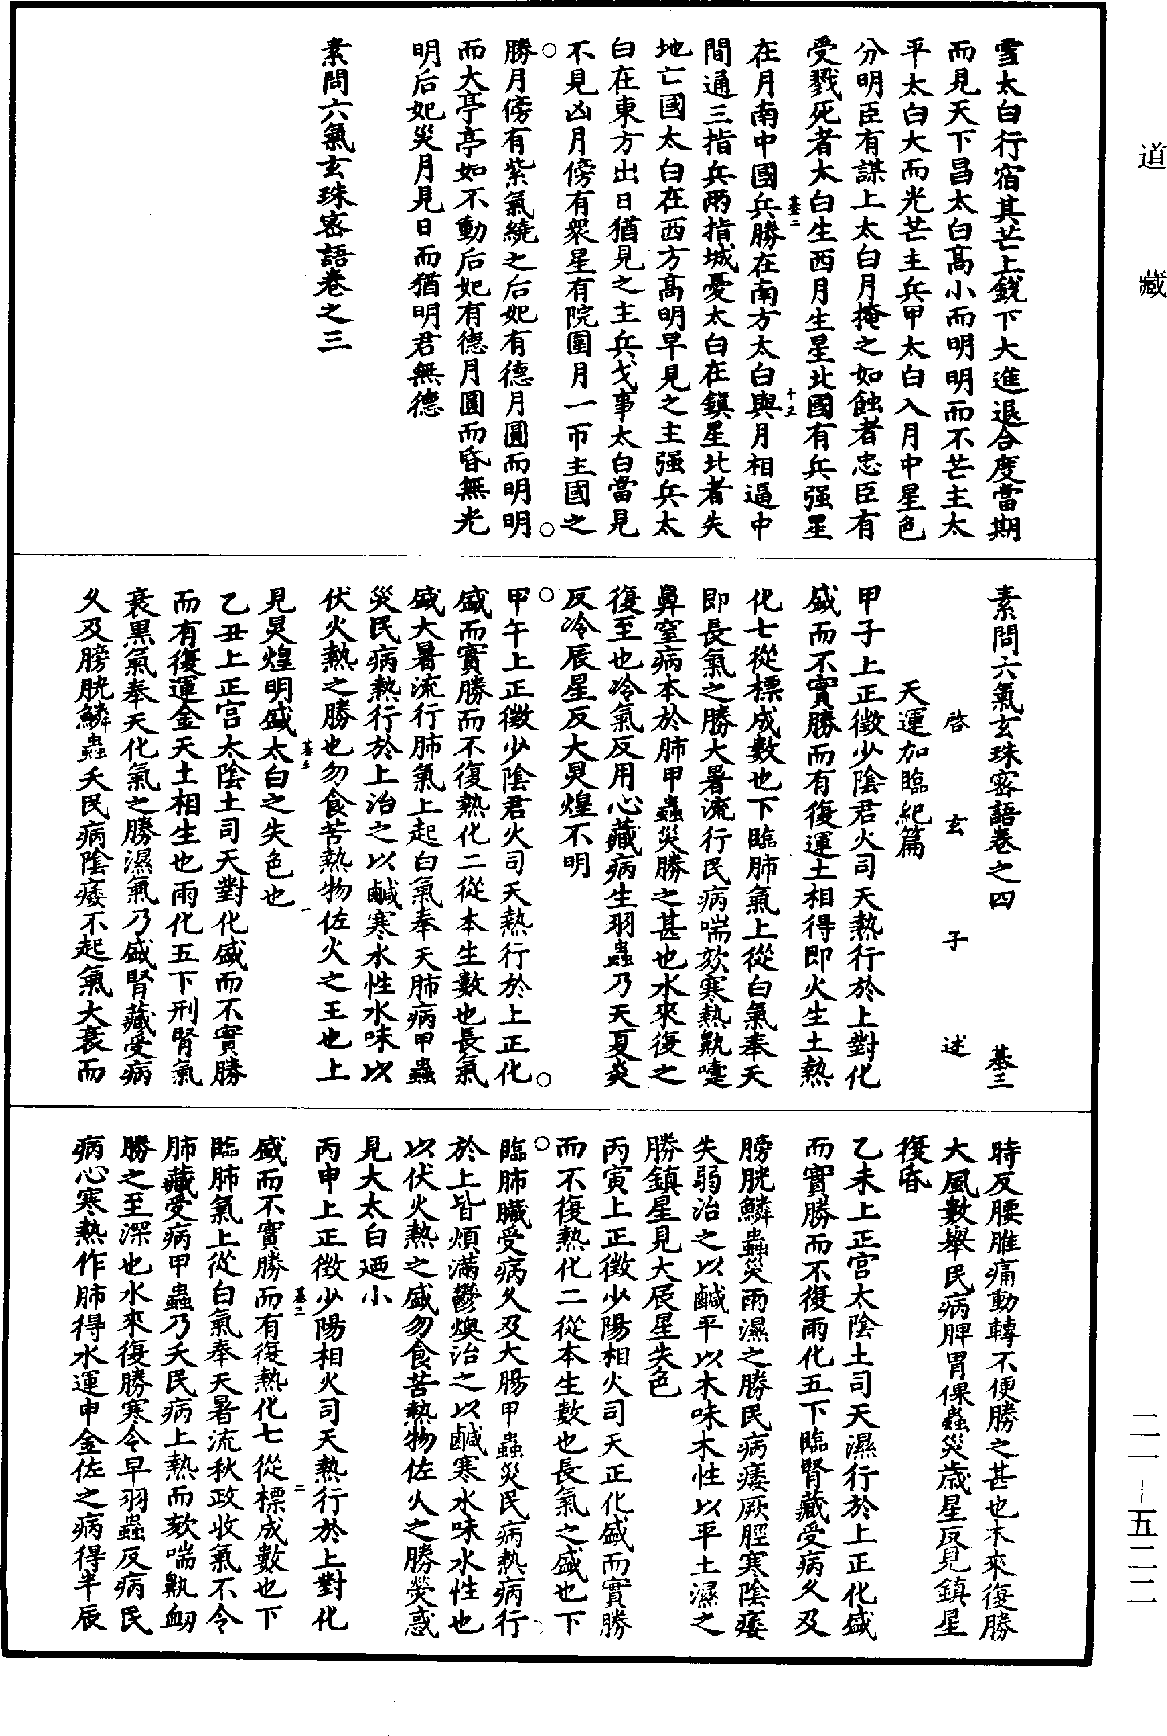 道藏
雪太白行宿其芒上銳下大進退合度當期
而見天下昌太白高小而明明而不芒主太
平太白大而光芒主兵甲太白入月中星色
分明臣有謀上太白月掩之如蝕者忠臣有
受戮死者太白生西月生星北國有兵强星
在月南中國兵勝在南方太白與月相逼中
間通三指兵兩指城憂太白在鎮星北者失
地亡國太白在西方高明早見之主强兵太
白在東方出日猶見之主兵戈事太白當見
不見凶月傍有眾星有院圍月一帀主國之
勝月傍有紫氣繞之后妃有德月圓而明明
而大亭亭如不動后妃有德月圓而昏無光
明后妃災月見日而猶明君無德
素問六氣玄珠密語卷之三
素問六氣玄珠密語卷之四 基三
啓玄子述
天運加臨紀篇
甲子上正徵少陰君火司天熱行於上對化
盛而不實勝而有復運土相得即火生土熱
化七從標成數也下臨肺氣上從白氣奉天
即長氣之勝大暑流行民病喘欬寒熱鼽嚏
鼻窒病本於肺甲蟲災勝之甚也水來復之
復至也冷氣反用心藏病生羽蟲乃天夏炎
反冷辰星反大炅煌不明
甲午上正徵少陰君火司天熱行於上正化
盛而實勝而不復熱化二從本生數也長氣
盛大暑流行肺氣上起白氣奉天肺病甲蟲
災民病熱行於上治之以鹹寒水性水味以
伏火熱之勝也勿食苦熱物佐火之王也上
見炅煌明盛太白之失色也
乙丑上正宫太陰土司天對化盛而不實勝
而有復運金天土相生也雨化五下刑腎氣
衰黑氣奉天化氣之勝濕氣乃盛腎藏受病
久及膀胱鱗蟲夭民病陰痿不起氣大衰而
時反腰脽痛動轉不便勝之甚也木來復勝
大風數舉民病脾胃倮蟲災歲星反見鎮星
復昏
乙未上正宫太陰土司天濕行於上正化盛
而實勝而不復雨化五下臨腎藏受病久及
膀胱鱗蟲災雨濕之勝民病痿厥脛寒陰痿
失弱治之以鹹平以木味木性以平土濕之
勝鎮星見大辰星失色
丙寅上正徵少陽相火司天正化盛而實勝
而不復熱化二從本生數也長氣之盛也下
臨肺臟受病久及大腸甲蟲災民病熱病行
於上皆煩滿鬱燠治之以鹹寒水味水性也
以伏火熱之盛勿食苦熱物佐火之勝熒惑
見大太白廼小
丙申上正徵少陽相火司天熱行於上對化
盛而不實勝而有復熱化七從標成數也下
臨肺氣上從白氣奉天暑流秋政收氣不令
肺藏受病甲蟲乃夭民病上熱而欬喘鼽衂
勝之至深也水來復勝寒令早羽蟲反病民
病心寒熱作肺得水運申金佐之病得半辰
二一-五二二